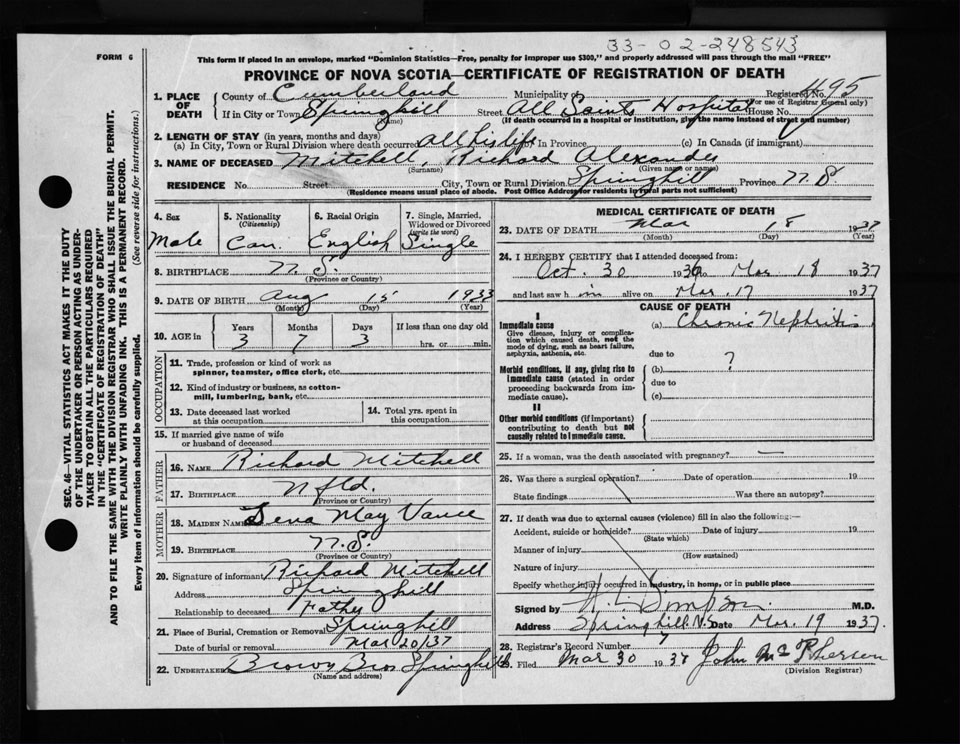 33-02-248543
FORM 6
This form if placed in an envelope, marked "Dominion Statistics—Free, penalty for improper use $300," and properly addressed will pass through the mail "FREE"
PROVINCE OF NOVA SCOTIA—CERTIFICATE OF REGISTRATION OF DEATH
1. PLACE OF DEATH
County of Cumberland Municipality of Registered No. 495
(For use of Registrar General only)
If in City or Town Springhill Street All Saints Hospital House No.
(Name) (If death occurred in a hospital or institution, give the name instead of street and number)
2. LENGTH OF STAY (in years, months and days)
(a) In City, Town or Rural Division where death occurred all his life In Province (c) In Canada (if immigrant)
3. NAME OF DECEASED Mitchell, Richard Alexander
(Surname) (Given name or names)
RESIDENCE No. Street City, Town or Rural Division Springhill Province N.S.
(Residence means usual place of abode. Post Office Address for residents in rural parts not sufficient)
4. Sex Male
5. Nationality (Citizenship) Can.
6. Racial Origin English
7. Single, Married, Widowed or Divorced (write the word) Single
8. BIRTHPLACE N.S.
(Province or Country)
9. DATE OF BIRTH Aug 15 1933
(Month) (Day) (Year)
10. AGE in Years 3 Months 7 Days 3 If less than one day old hrs. or min.
OCCUPATION
11. Trade, profession or kind of work as spinner, teamster, office clerk, etc.
12. Kind of industry or business, as cotton-mill, lumbering, bank, etc.
13. Date deceased last worked at this occupation
14. Total yrs. spent in this occupation
15. If married give name of wife or husband of deceased
FATHER
16. NAME Richard Mitchell
17. BIRTHPLACE Nfld.
(Province or Country)
MOTHER
18. MAIDEN NAME Lena May Vance
19. BIRTHPLACE N.S.
(Province or Country)
20. Signature of informant Richard Mitchell
Address Springhill
Relationship to deceased Father
21. Place of Burial, Cremation or Removal Springhill
Date of burial or removal Mar 20/37
22. UNDERTAKER Brown Bros Springhill
(Name and address)
MEDICAL CERTIFICATE OF DEATH
23. DATE OF DEATH Mar 18 1937
(Month) (Day) (Year)
24. I HEREBY CERTIFY that I attended deceased from:
Oct. 30 1936 to Mar 18 1937
and last saw h im alive on Mar. 17 1937
CAUSE OF DEATH
I
Immediate cause
Give disease, injury or complication which caused death, not the mode of dying, such as heart failure, asphyxia, asthenia, etc.
(a) Chronic Nephritis
due to
Morbid conditions, if any, giving rise to immediate cause (stated in order proceeding backwards from immediate cause)
(b) ?
due to
(c)
II
Other morbid conditions (if important) contributing to death but not causally related to immediate cause.
25. If a woman, was the death associated with pregnancy? —
26. Was there a surgical operation? Date of operation 19
State findings Was there an autopsy?
27. If death was due to external causes (violence) fill in also the following:—
Accident, suicide or homicide? Date of injury 19
(State which)
Manner of injury
(How sustained)
Nature of injury
Specify whether injury occurred in industry, in home, or in public place
Signed by Simpson M.D.
Address Springhill N.S. Date Mar. 19 1937.
28. Registrar's Record Number 7
29. Filed Mar 30 1937 John McPherson
(Division Registrar)
SEC. 46—VITAL STATISTICS ACT MAKES IT THE DUTY
OF THE UNDERTAKER OR PERSON ACTING AS UNDER-
TAKER TO OBTAIN ALL THE PARTICULARS REQUIRED
IN THE "CERTIFICATE OF REGISTRATION OF DEATH"
AND TO FILE THE SAME WITH THE DIVISION REGISTRAR WHO SHALL ISSUE THE BURIAL PERMIT.
WRITE PLAINLY WITH UNFADING INK. THIS IS A PERMANENT RECORD.
Every item of information should be carefully supplied. (See reverse side for instructions.)